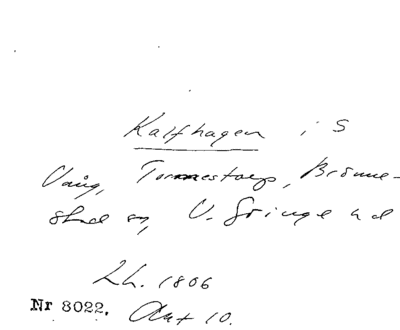 Kalfhagen i S
Vång, Tormestorp, Brönne-
stad sn, V. Göinge hd
Lh. 1806
Nr 8022. Akt 10.